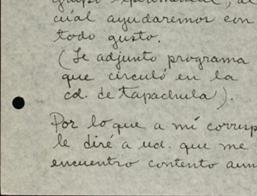 cual ayudaremos con
todo gusto.
(Se adjunto programa
que circuló en la
cd. de Tapachula).
Por lo que a mí corresp
le diré a ud. que me
encuentro contento aun